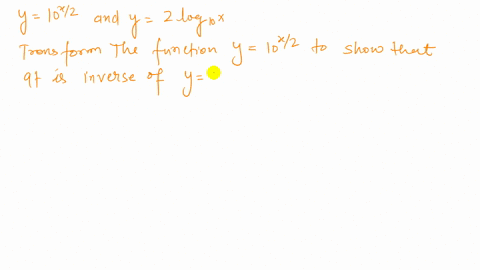 y = 10^{x/2} and y = 2 log₁₀x
Transform The function y = 10^{x/2} to show that
It is inverse of y =